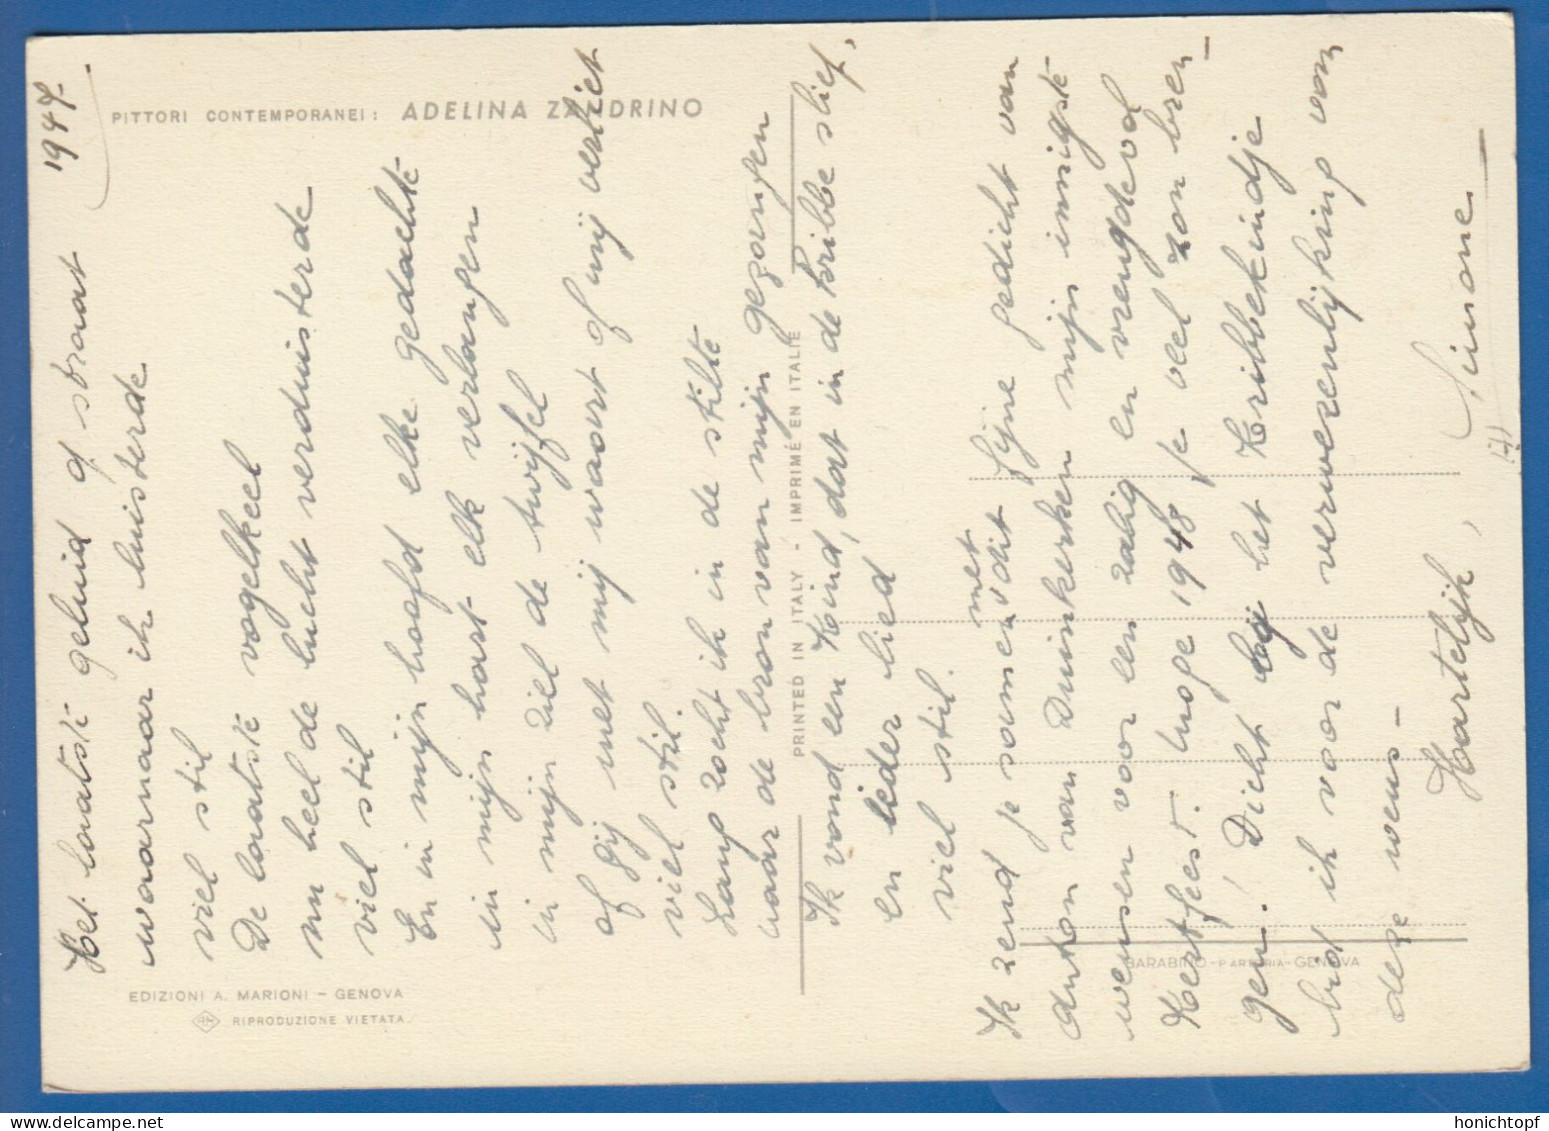 1947.
Het laatste geluid of straat
waarnaar ik luisterde
viel stil
De laatste vogelkeel
nu heel de lucht verduisterde
viel stil
En in mijn hoofd elke gedachte
in mijn hart elk verlangen
in mijn ziel de twijfel
of gij met mij waart of mij verliet
viel stil.
Lang zocht ik in de stilte
naar de bron van mijn gezangen
Ik vond een Kind, dat in de kribbe slief,
en ieder lied
viel stil.
Ik zend je samen met dit fijne gedicht van
Anton van Duinkerken mijn innigste
wensen voor een zalig en vreugdevol
Kerstfeest. Moge 1948 je veel zon bren-
gen! Dicht bij het Kribbekindje
bid ik voor de verwezenlijking van
deze wens-
Hartelijk,
Simone
PITTORI CONTEMPORANEI: ADELINA ZANDRINO
PRINTED IN ITALY - IMPRIMÉ EN ITALIE
EDIZIONI A. MARIONI - GENOVA
RIPRODUZIONE VIETATA
BARABINO - GENOVA
honichtopf